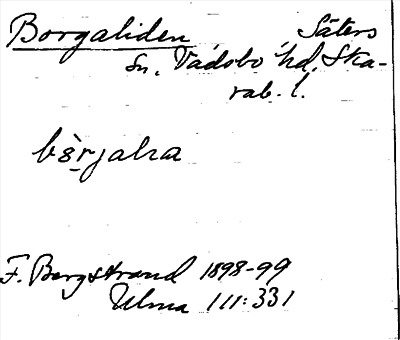 Borgaliden Säters
sn, Vadsbo hd, Ska-
rab. l.
F. Bergstrand 1898-99
Ulma 111:331